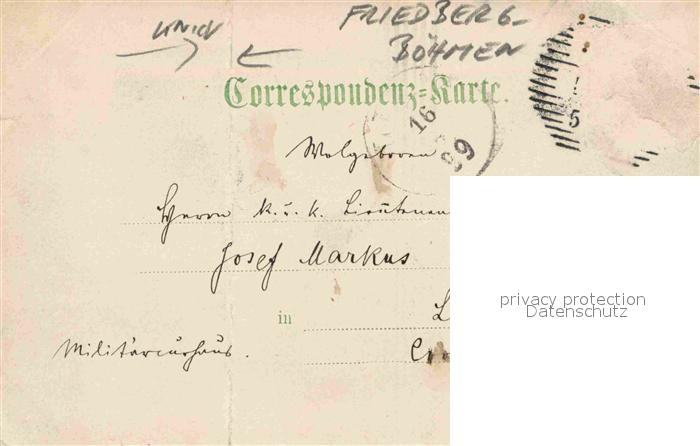 KNICK
FRIEDBERG-
BÖHMEN
Correspondenz-Karte.
16
99
5
Wolgeboren
Herrn k. u. k. Lieutenan
Josef Markus
in L
Militärcurhaus.
privacy protection
Datenschutz